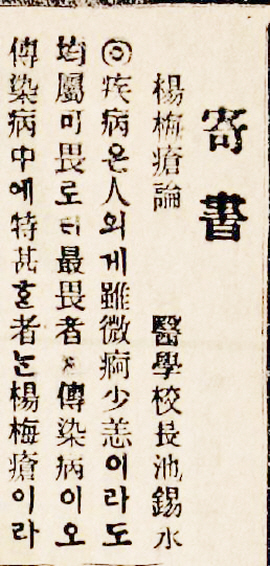 寄書
楊梅瘡論 醫學校長池錫永
◎疾病은人의게雖微痾少恙이라도
均屬可畏로되最畏者는傳染病이오
傳染病中에特甚한者는楊梅瘡이라